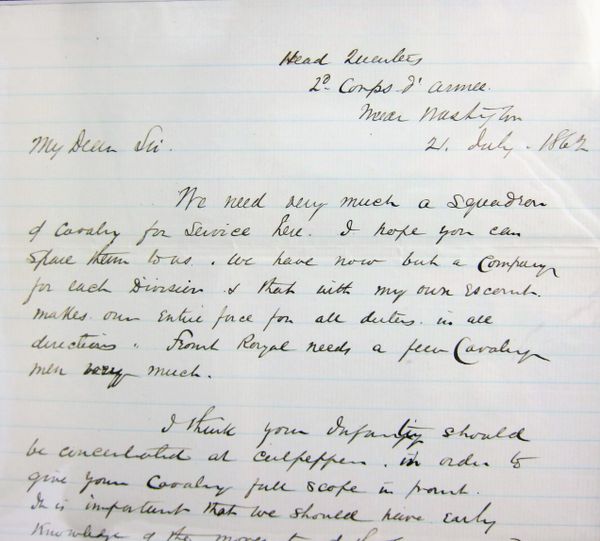 Head Quarters
2d Corps d' armee.
Near Washington
My Dear Sir.
21. July. 1862
We need very much a squadron
of Cavalry for service here. I hope you can
spare them to us. We have now but a Company
for each Division & that with my own Escort.
makes our Entire force for all duties in all
directions. Front Royal needs a few Cavalry
men very much.
I think your Infantry should
be concentrated at Culpepper. in order to
give your Cavalry full scope in front.
It is important that we should have Early
Knowledge of the